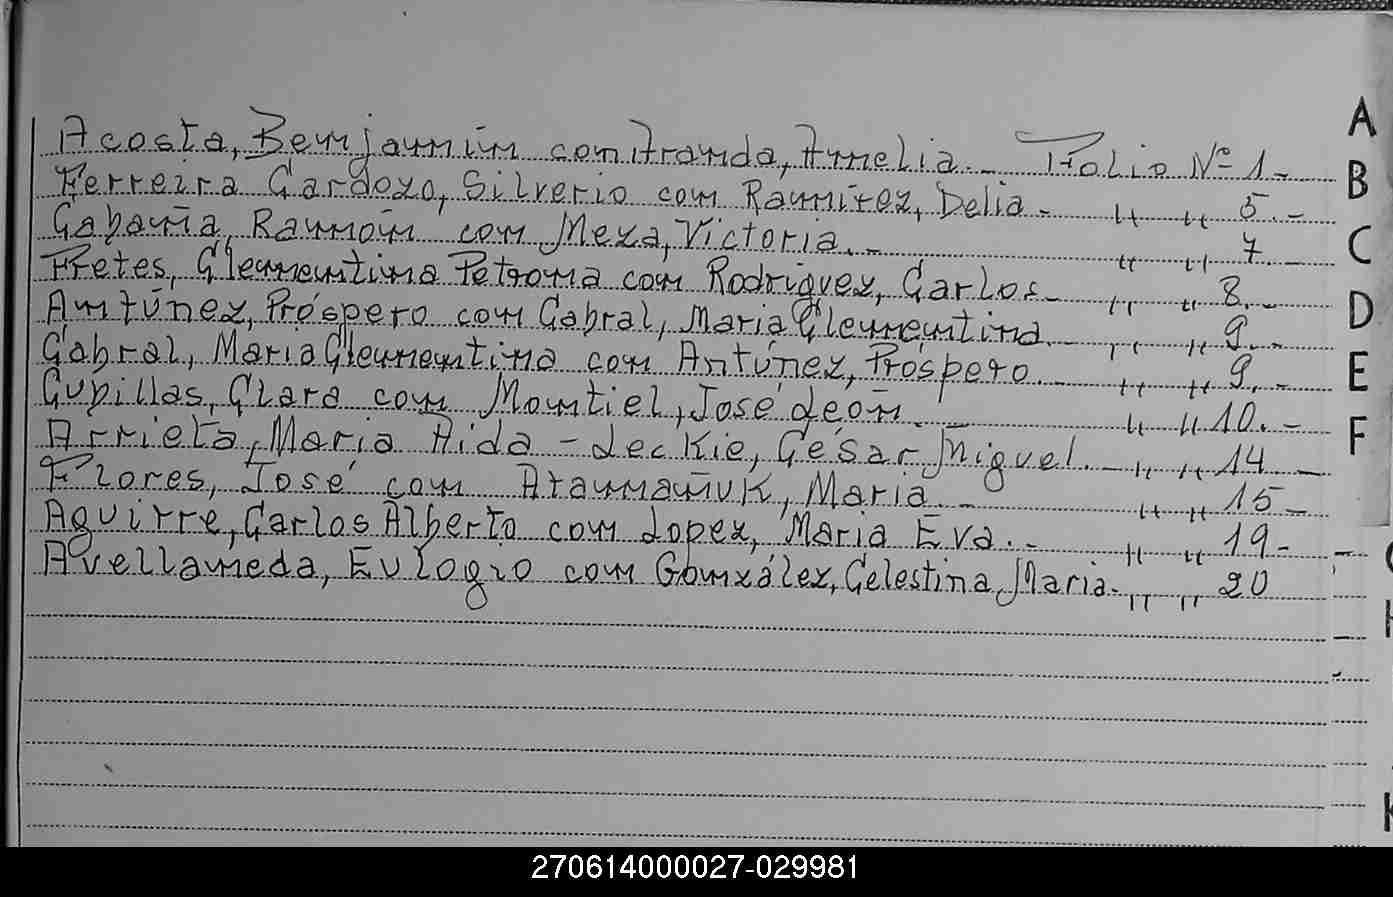 Acosta, Benjamín con Aranda, Amelia.- Folio Nº 1.-
Ferreira Cardozo, Silverio con Ramírez, Delia.- " " 5.-
Cabaña, Ramón con Meza, Victoria.- " " 7.
Fretes, Clementina Petrona con Rodríguez, Carlos.- " " 8.-
Antúnez, Próspero con Cabral, María Clementina.- " " 9.-
Cabral, María Clementina con Antúnez, Próspero.- " " 9.-
Cubillas, Clara con Montiel, José León.- " " 10.-
Arrieta, María Aida - Leckie, César Miguel.- " " 14-
Flores, José con Atamañuk, María.- " " 15-
Aguirre, Carlos Alberto con Lopez, María Eva.- " " 19-
Avellaneda, Eulogio con González, Celestina María.- " " 20
A
B
C
D
E
F
270614000027-029981